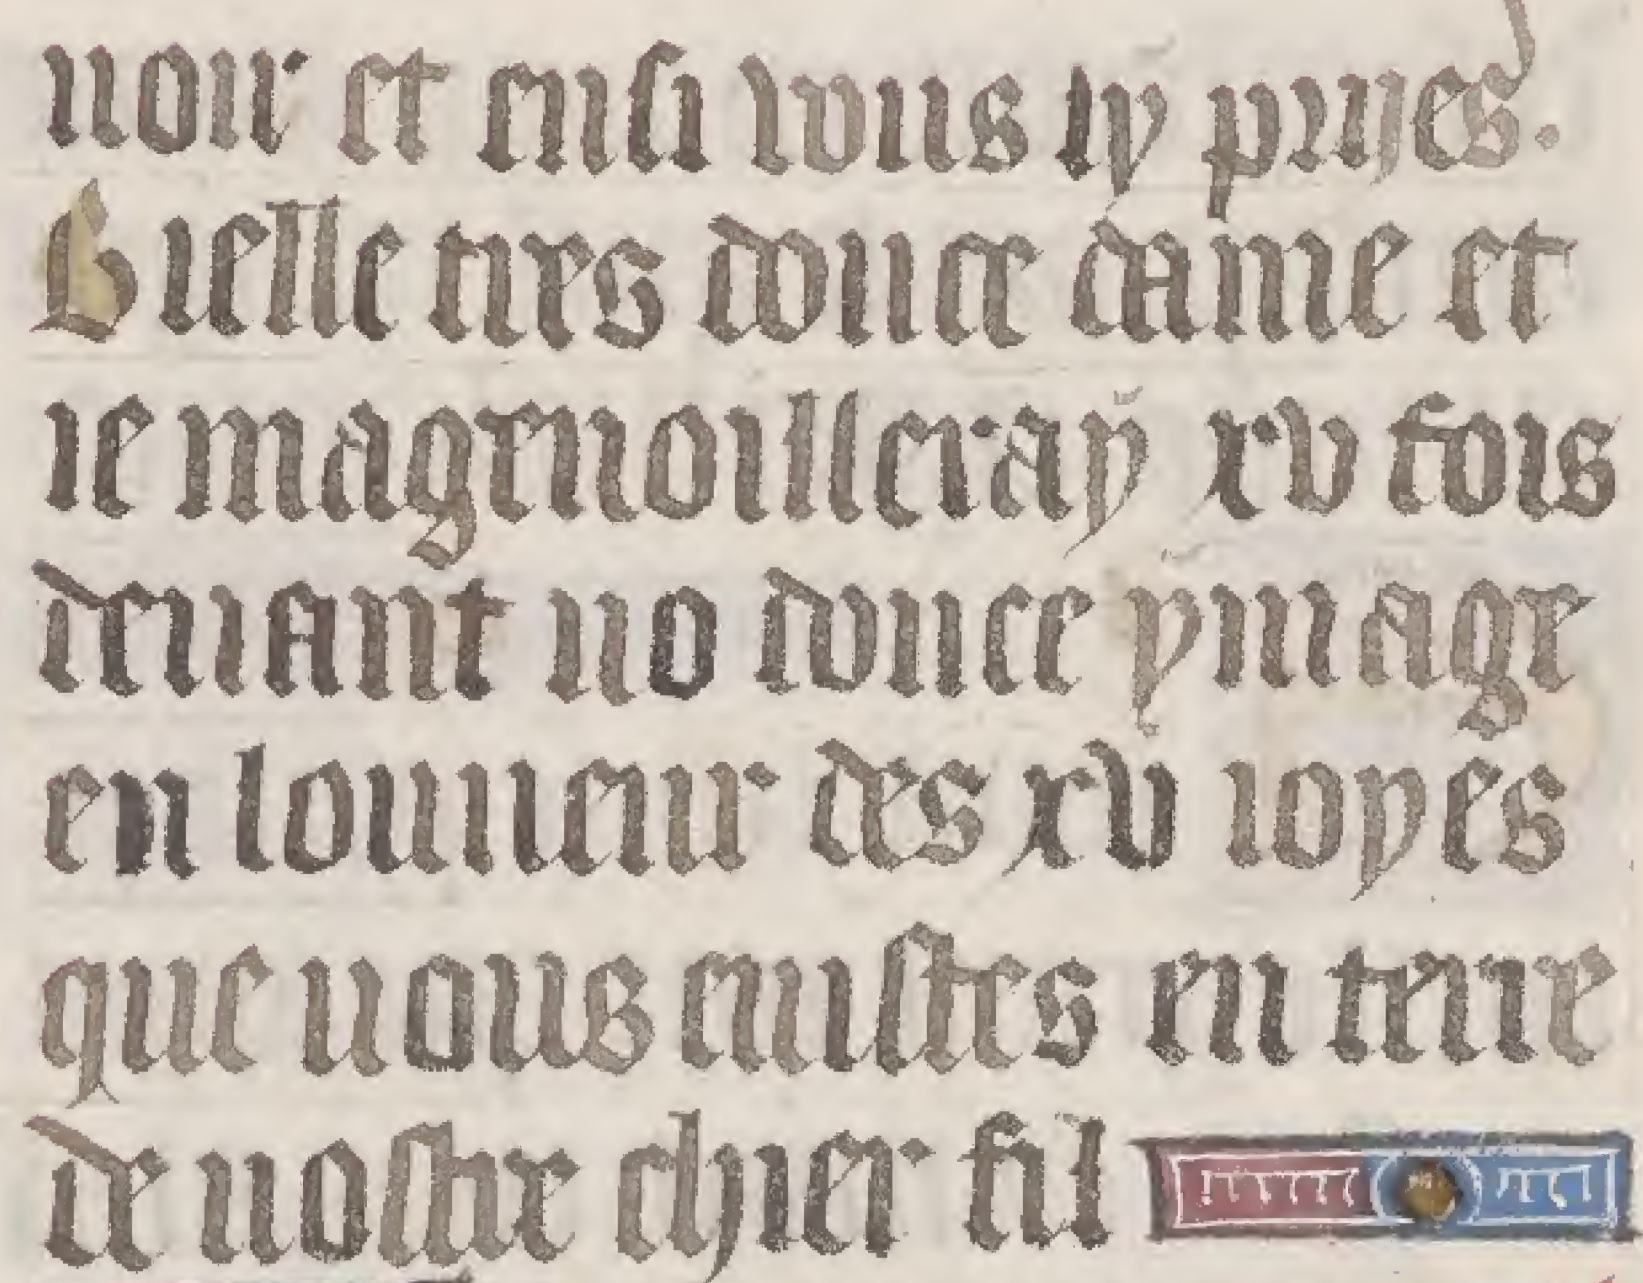 uoir et ensi vous ly priies.
Bielle tres douce dame et
ie magenoilleray xv fois
deuant uo douce ymage
en lonneur des xv ioyes
que uous euistes en terre
de uostre chier fil